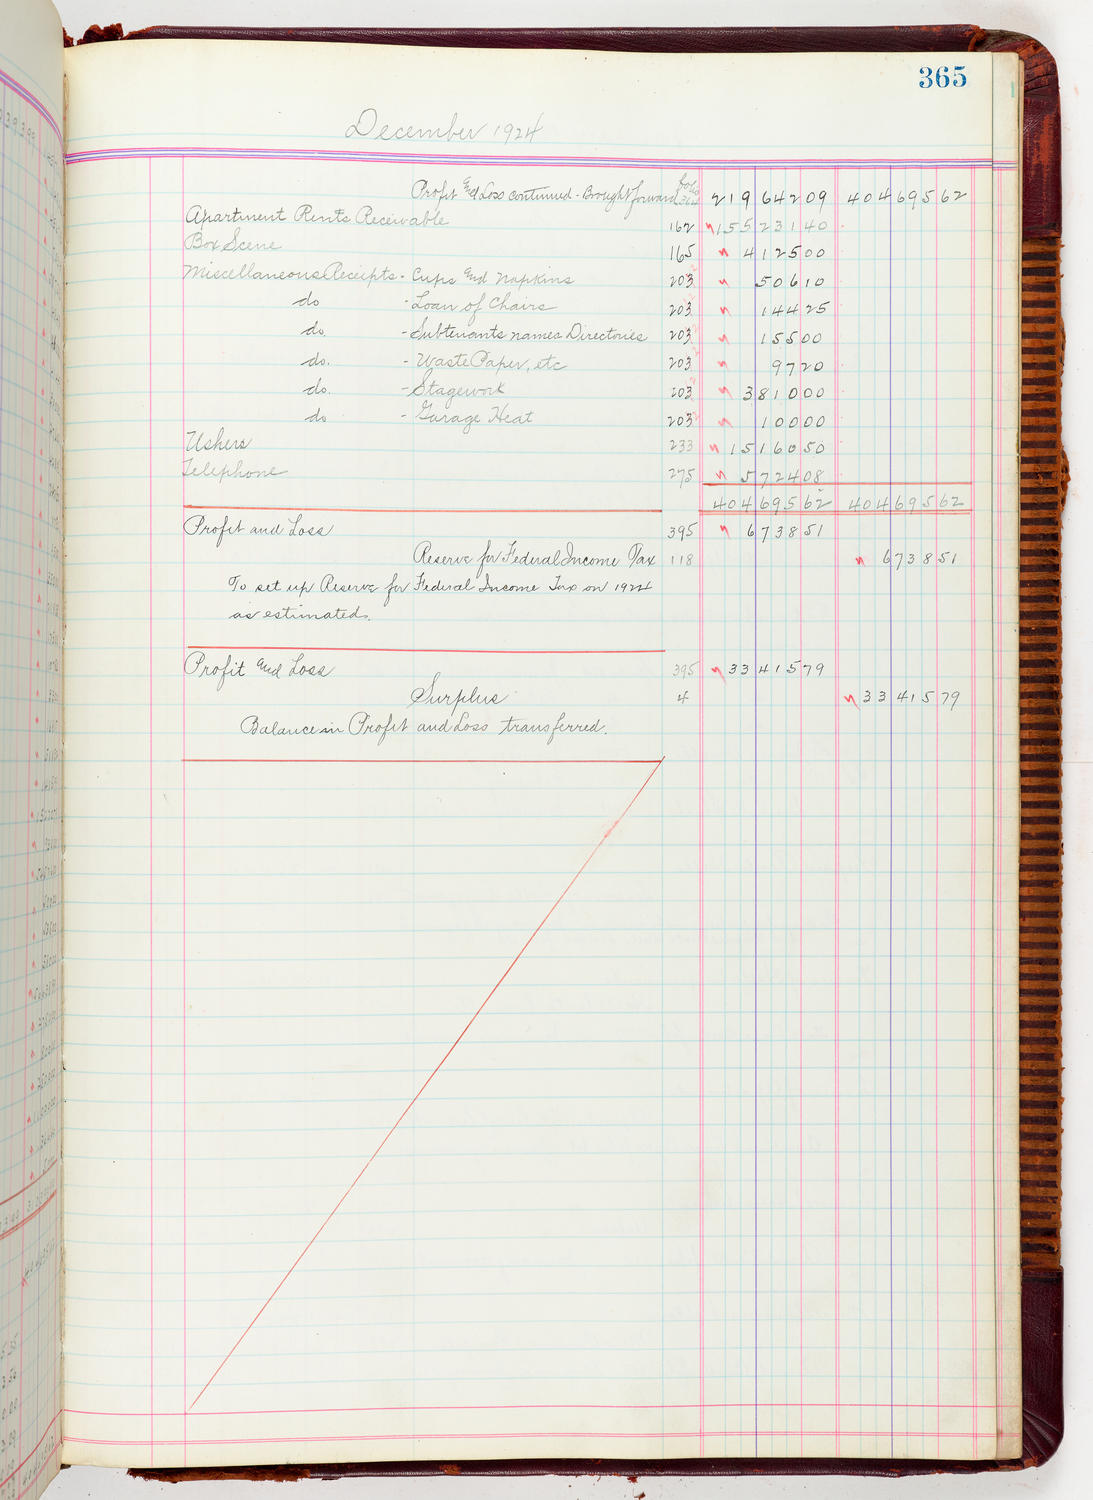 365
December 1924
Profit and Loss continued - Brought forward folio 364 219642 09 404695 62
Apartment Rents Receivable 162 155231 40
Box Scene 165 4125 00
Miscellaneous Receipts - Cups and Napkins 203 506 10
do - Loan of Chairs 203 144 25
do. - Subtenants names Directories 203 155 00
do. - Waste Paper, etc 203 97 20
do. - Stagework 203 3810 00
do - Garage Heat 203 100 00
Ushers 233 15160 50
Telephone 275 5724 08
404695 62 404695 62
Profit and Loss 395 6738 51
Reserve for Federal Income Tax 118 6738 51
To set up Reserve for Federal Income Tax on 1924
as estimated.
Profit and Loss 395 33415 79
Surplus 4 33415 79
Balance in Profit and Loss transferred.